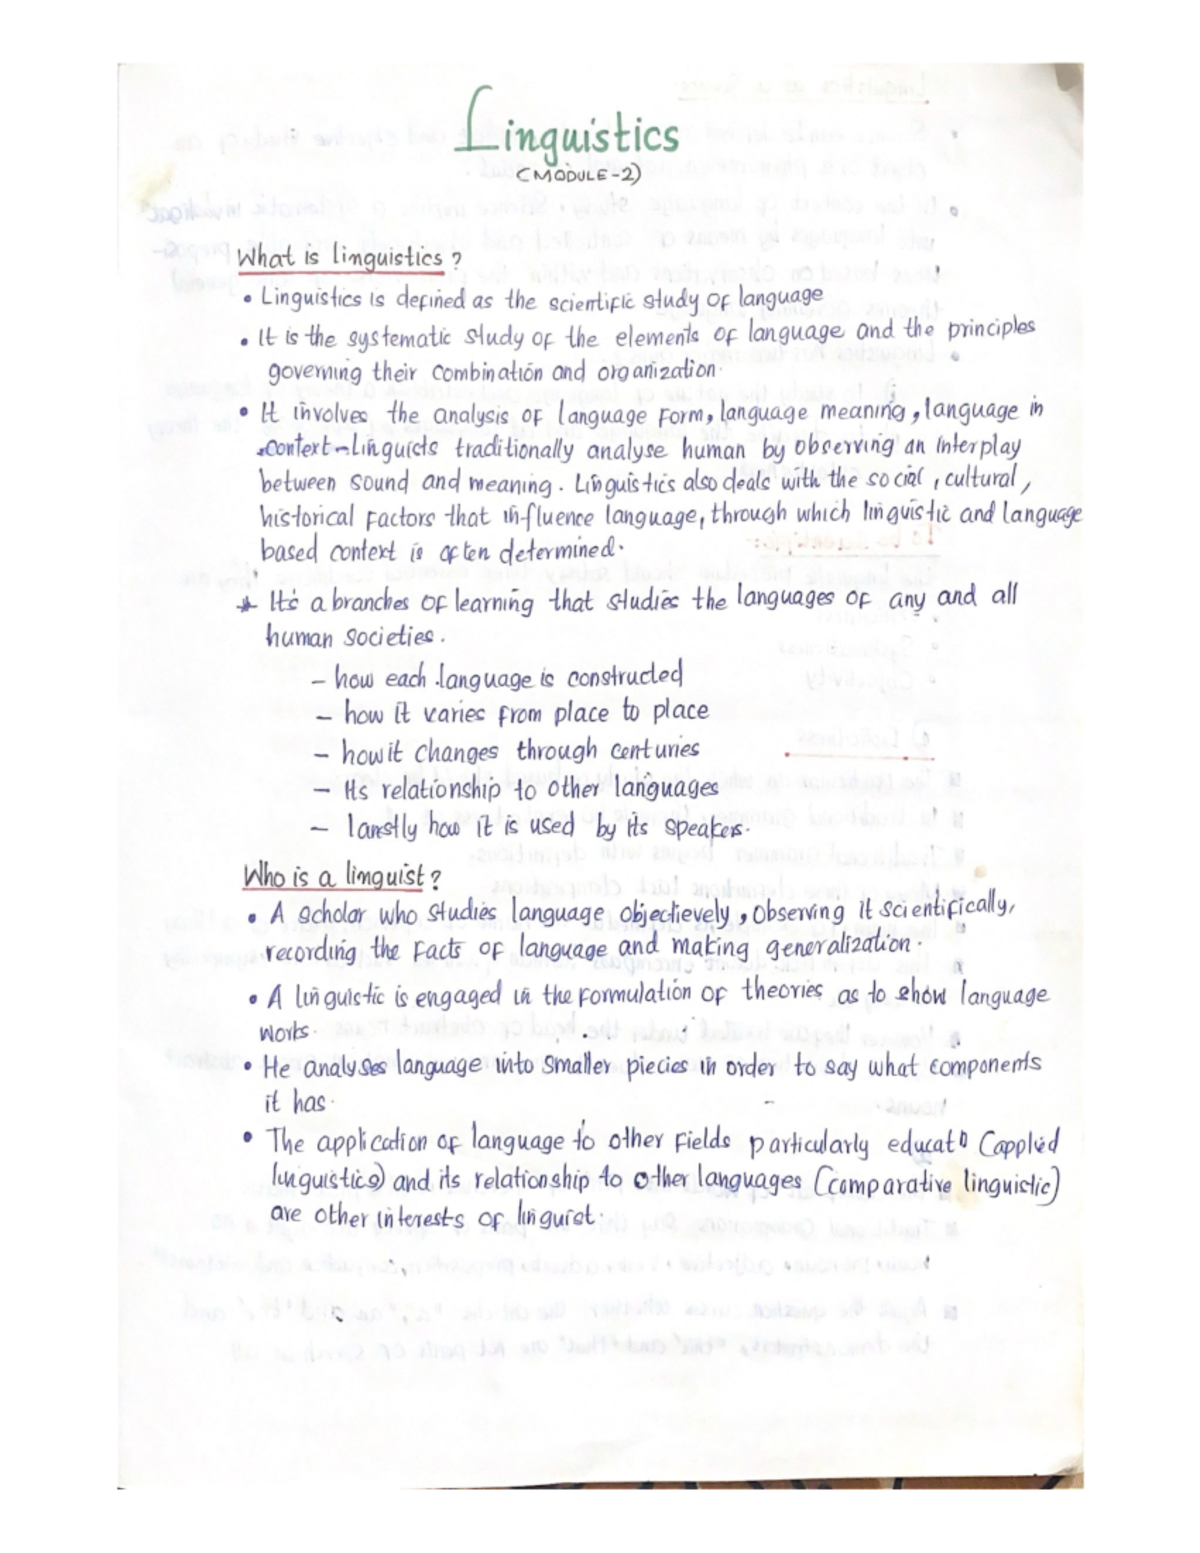 Linguistics
(MODULE-2)
What is linguistics?
• Linguistics is defined as the scientific study of language
• It is the systematic study of the elements of language and the principles
governing their combination and organization.
• It involves the analysis of language form, language meaning, language in
context - Linguists traditionally analyse human by observing an interplay
between sound and meaning. Linguistics also deals with the social, cultural,
historical factors that influence language, through which linguistic and language
based context is often determined.
* Its a branches of learning that studies the languages of any and all
human societies.
- how each language is constructed
- how it varies from place to place
- how it changes through centuries
- Its relationship to other languages
- lanstly how it is used by its speakers.
Who is a linguist?
• A scholar who studies language objectievely, Observing it scientifically,
recording the facts of language and making generalization.
• A linguistic is engaged in the formulation of theories as to show language
works.
• He analyses language into smaller piecies in order to say what components
it has.
• The application of language to other fields particularly educatⁿ (applied
linguistics) and its relationship to other languages (comparative linguistic)
are other interests of linguist.